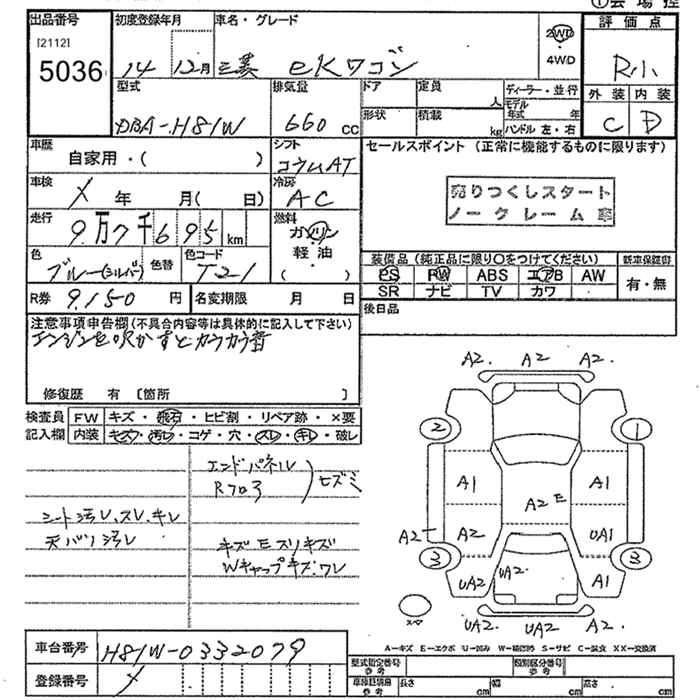 ①会場控
出品番号 初度登録年月 車名・グレード 評価点
[2112] 2WD
5036 14 12月 三菱 eKワゴン 4WD R小
型式 排気量 ドア 定員 人 ディーラー・並行 外装 内装
DBA-H81W 660 cc 形状 積載 kg モデル年式 年 ハンドル 左・右 C D
車歴 シフト セールスポイント (正常に機能するものに限ります)
自家用・( ) コラムAT
車検 冷房 売りつくしスタート
X 年 月( 日) AC ノークレーム車
走行 燃料
9万7千695km ガソリン
色 色替 色コード 軽油 装備品(純正品に限り○をつけてください) 新車保証書
ブルー(シルバ) T21 ( ) PS PW ABS エアB AW 有・無
R券 9.150円 名変期限 月 日 SR ナビ TV カワ
後日品
注意事項申告欄(不具合内容等は具体的に記入して下さい)
エンジンを吹かすとカラカラ音
修復歴 有 〔箇所 〕
A2. A2 A2.
検査員 FW キズ・飛石・ヒビ割・リペア跡・×要
記入欄 内装 キズ・汚レ・コゲ・穴・スレ・キレ・破レ
2 1
エンドパネル
Rフロア ヒズミ
A1 A1
A2 E
シート汚レ、スレ、キレ
天バリ汚レ
A2 A2 UA1
キズ E スリキズ
Wキャップキズ.ワレ
3 3
UA2 UA2 A1
スペア
UA2 UA2 A2.
A-キズ E-エクボ U-凹み W-補修跡 S-サビ C-腐食 XX-交換済
車台番号 H81W-0332079
登録番号 X
型式指定番号 参考 類別区分番号 参考
車検証積載 参考 長さ cm 幅 cm 高さ cm